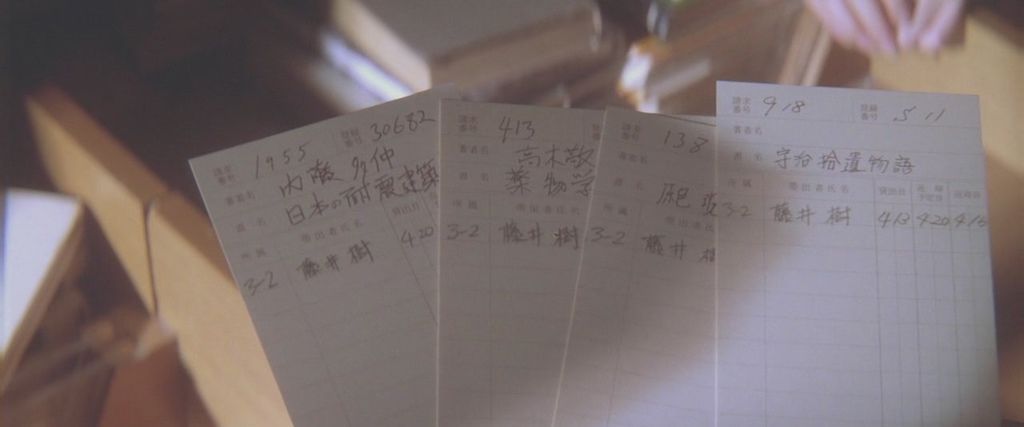 請求番号 1955 登録番号 30682
著者名 内藤多仲
書名 日本の耐震建築
所属 帯出者氏名 貸出日
3-2 藤井樹 420
請求番号 413
著者名 高木敬
書名 薬物学
所属 帯出者氏名
3-2 藤井樹
請求番号 138
著者名
書名
所属 帯出者氏名
3-2 藤井樹
請求番号 918 登録番号 511
著者名
書名 宇治拾遺物語
所属 帯出者氏名 貸出日 返却予定日 返却日
3-2 藤井樹 413 420 415